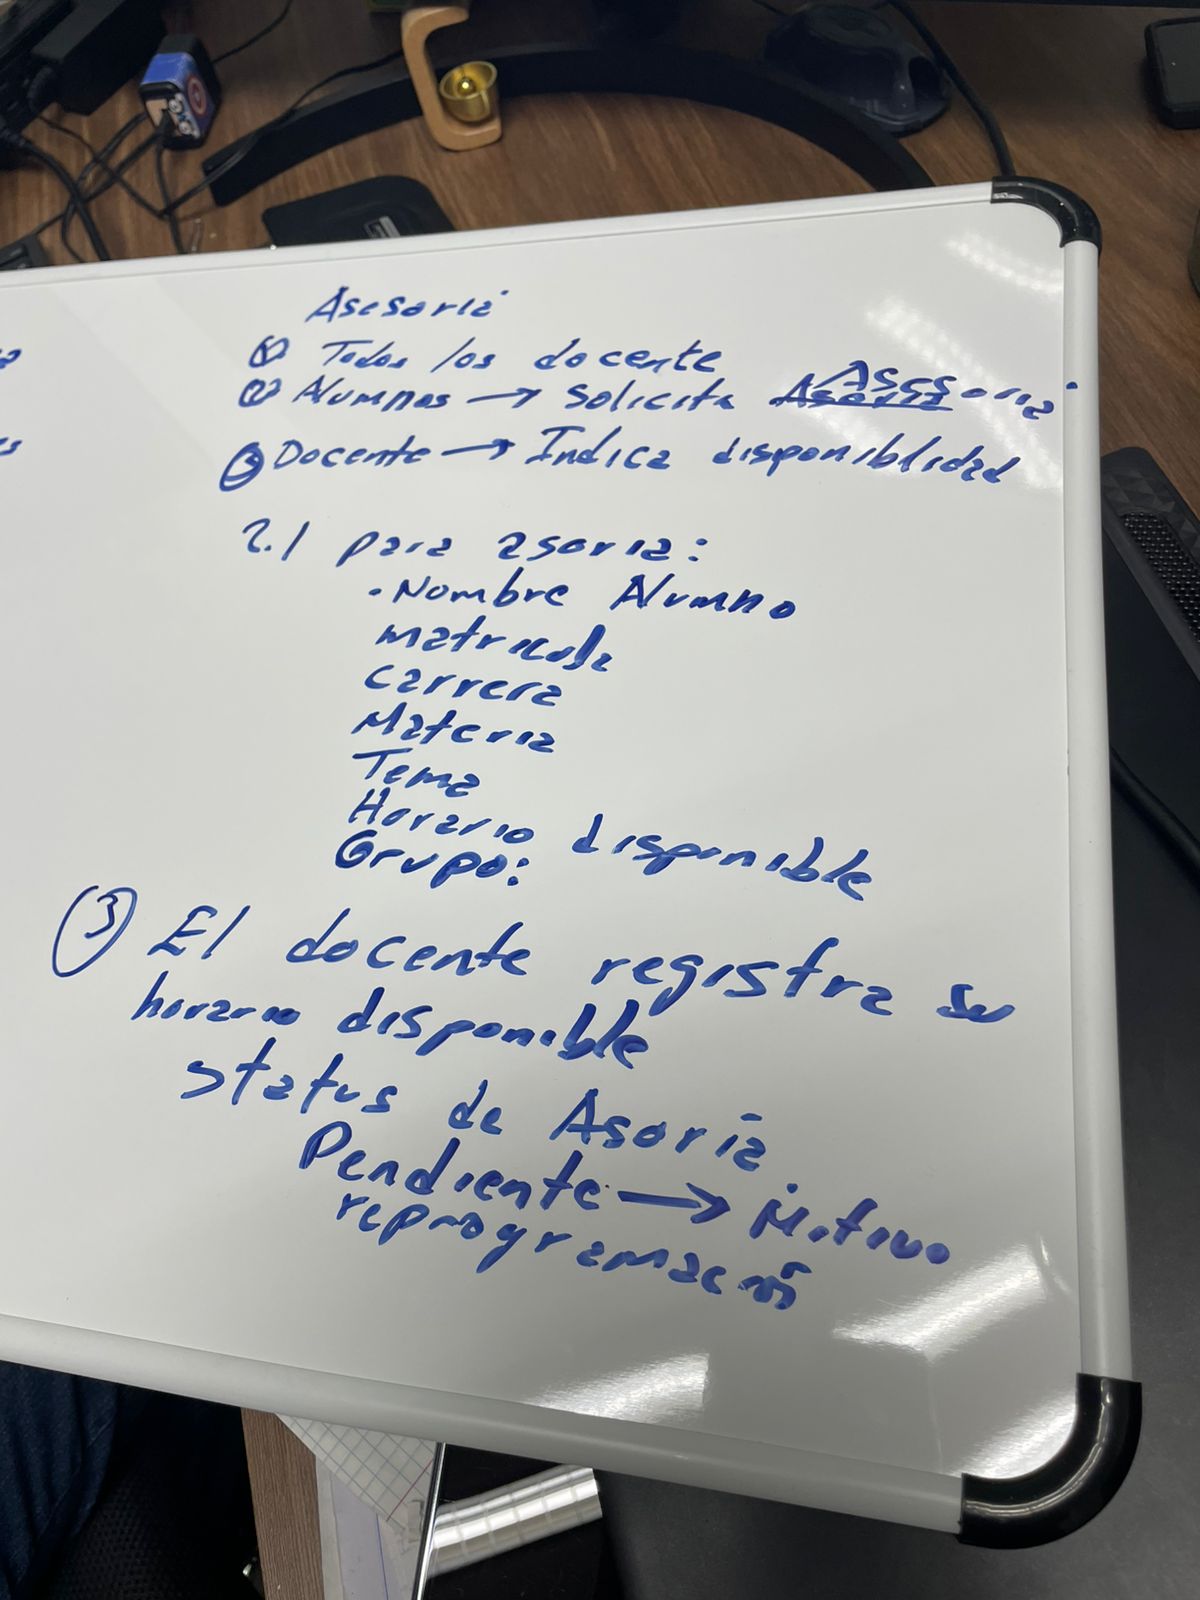 Asesoria
① Todos los docente
② Alumnos → Solicita Asoria Asesoria
③ Docente → Indica disponiblidad
2.1 para asoria:
. Nombre Alumno
matricula
carrera
Materia
Tema
Horario disponible
Grupo:
③ El docente registra su
horario disponible
status de Asoría
Pendiente → Motivo
reprogramación